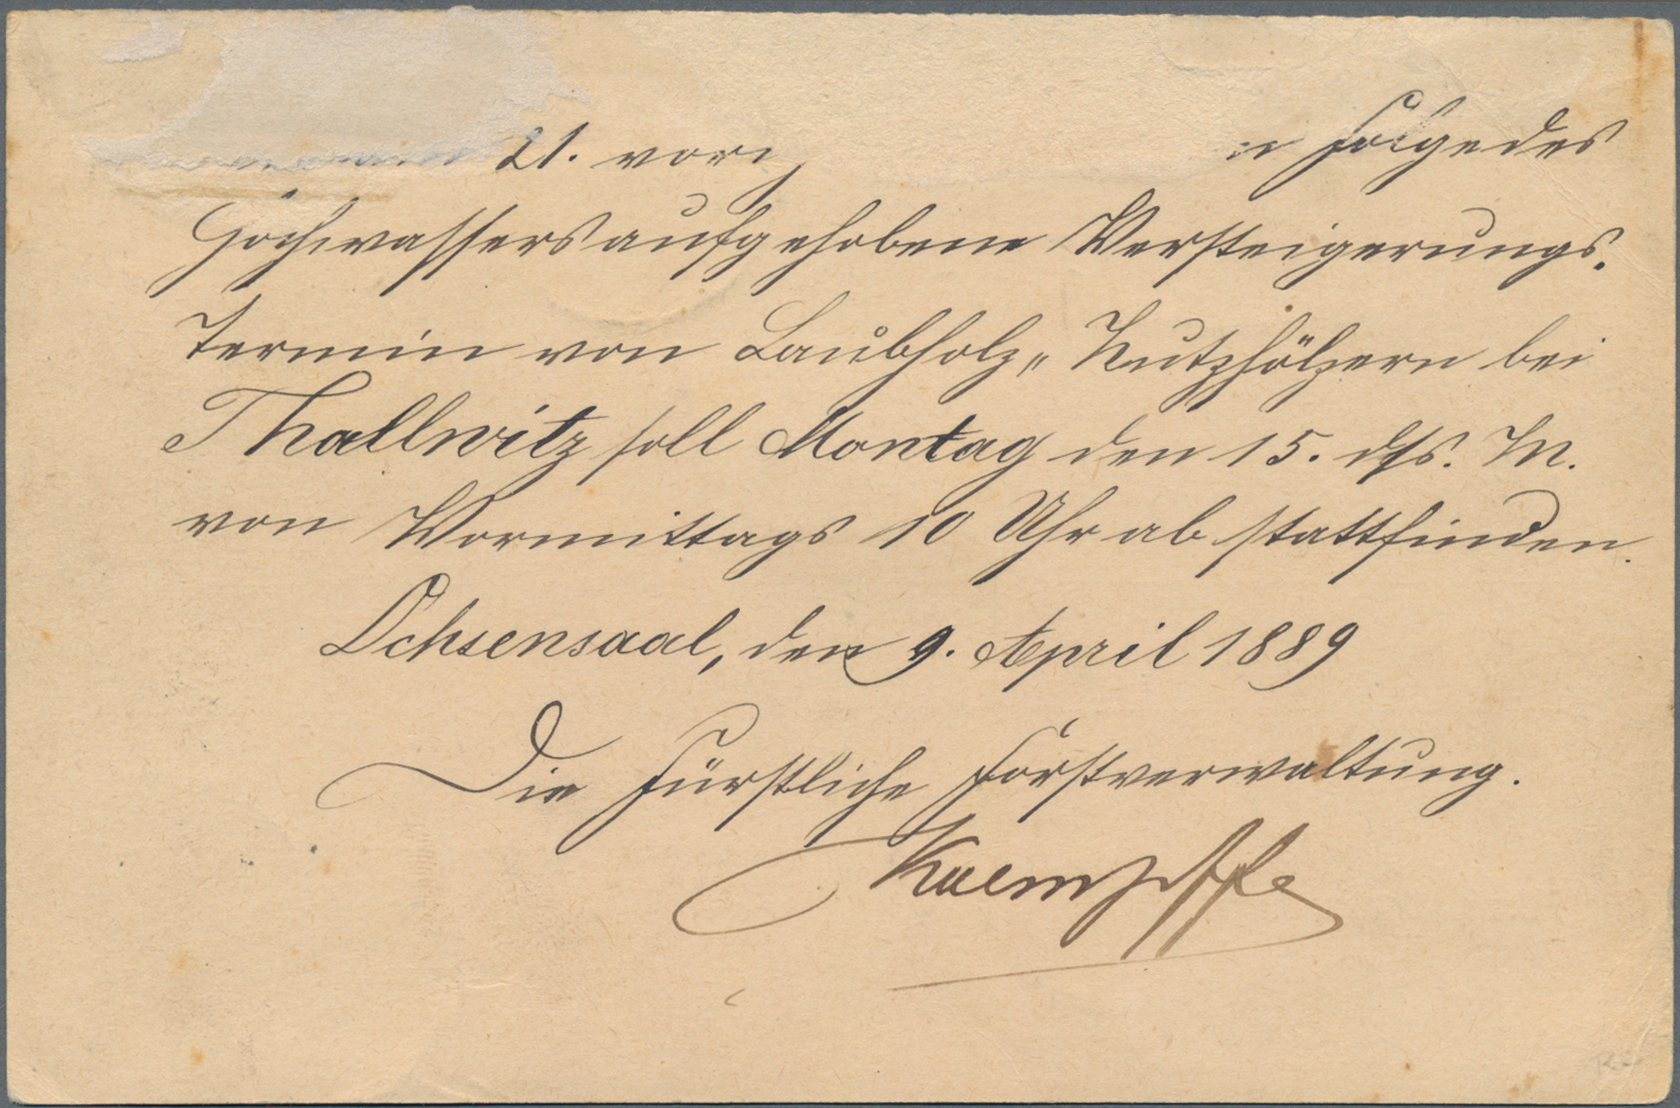 21. vorig
Folge des
Hochwassers aufgehobene Versteigerungs-
Termin von Laubholz-Nutzhölzern bei
Thallwitz soll Montag den 15. dſs. M.
von Vormittags 10 Uhr ab stattfinden.
Ochsensaal, den 9. April 1889
Die Fürstliche Forstverwaltung.
Kaempffe